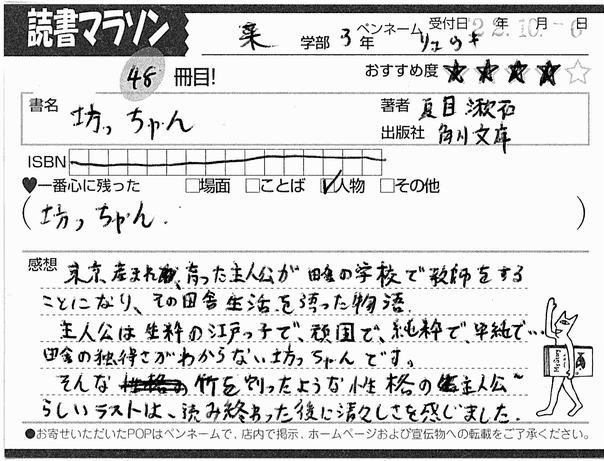 読書マラソン
薬 学部 3年 ペンネーム リュウキ 受付日 22年10月-6日
48 冊目! おすすめ度 ★★★★☆
書名 坊っちゃん 著者 夏目漱石
出版社 角川文庫
ISBN
♥一番心に残った □場面 □ことば ☑人物 □その他
(坊っちゃん.)
感想 東京産まれ、育った主人公が田舎の学校で教師をする
ことになり、その田舎生活を語った物語.
主人公は生粋の江戸っ子で、頑固で、純粋で、単純で…
田舎の独特さがわからない坊っちゃんです。
そんな 竹を割ったような性格の主人公
らしいラストは、読み終わった後に清々しさを感じました.
●お寄せいただいたPOPはペンネームで、店内で掲示、ホームページおよび宣伝物への転載をご了承ください。